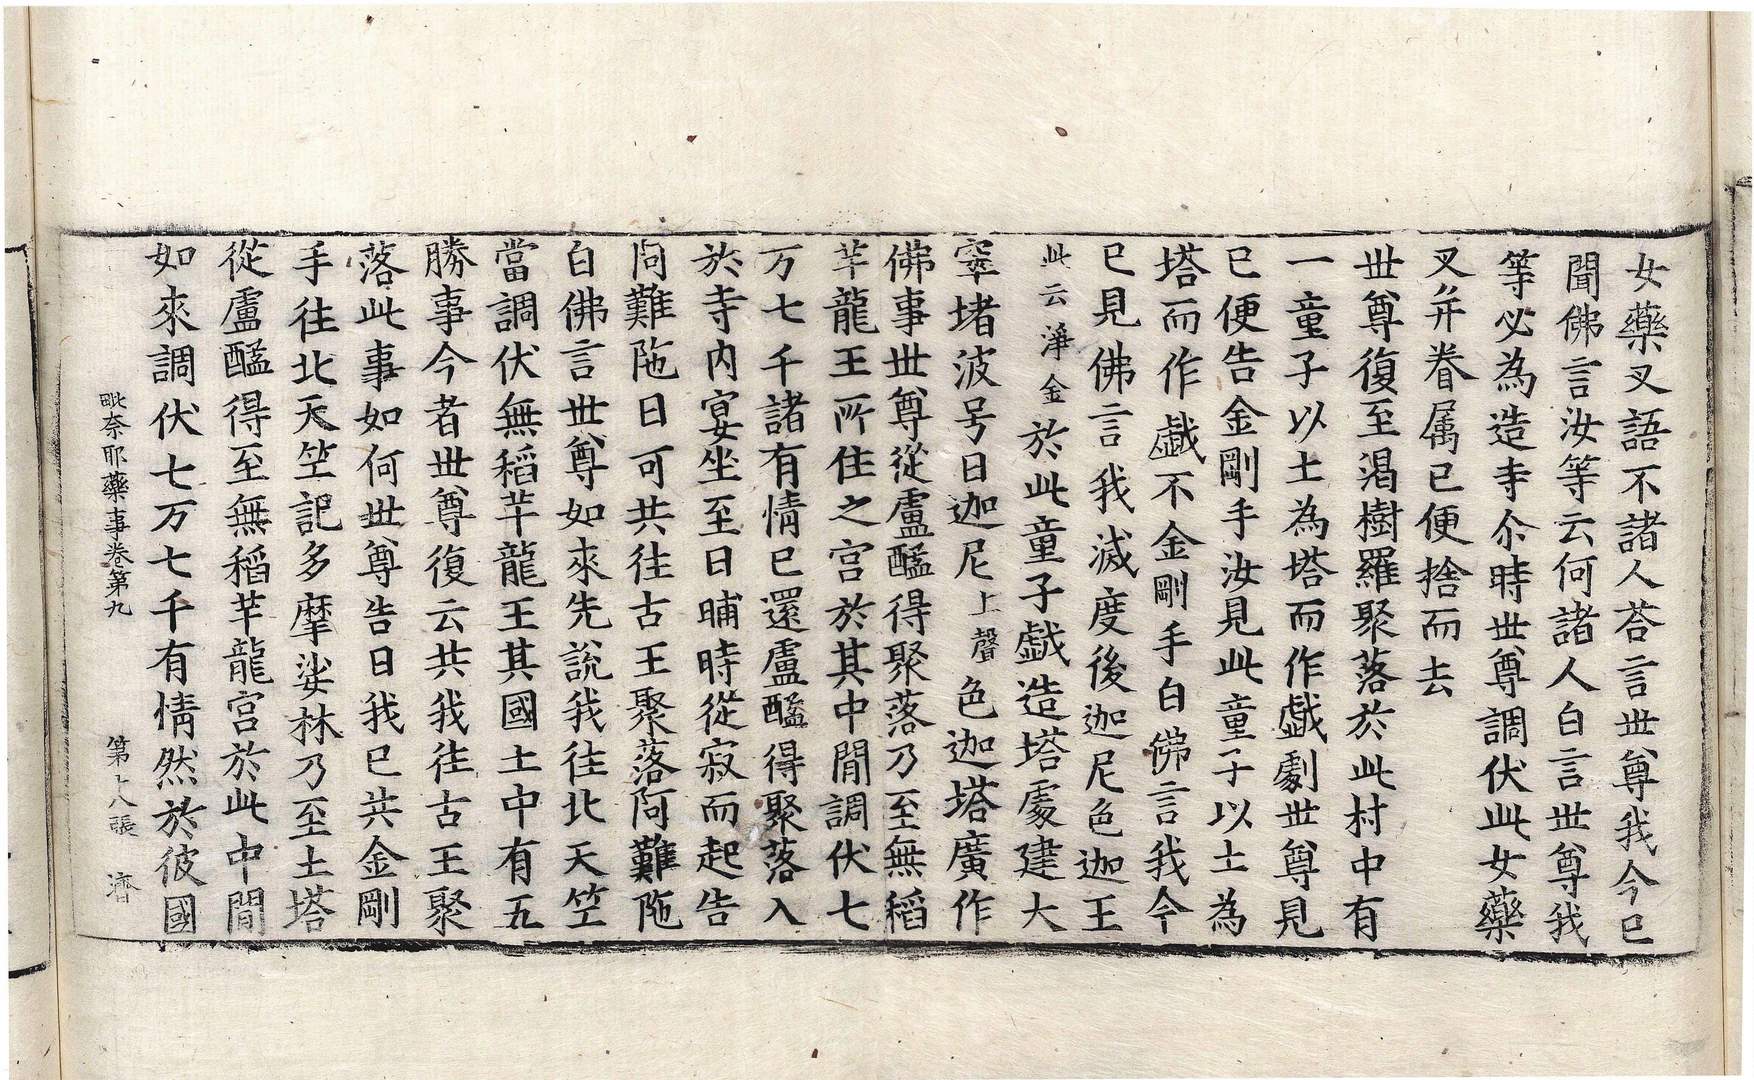 女藥叉語不諸人荅言世尊我今已
聞佛言汝等云何諸人白言世尊我
等必為造寺尒時世尊調伏此女藥
叉并眷属已便捨而去
世尊復至渴樹羅聚落於此村中有
一童子以土為塔而作戱劇世尊見
已便告金剛手汝見此童子以土為
塔而作戱不金剛手白佛言我今
已見佛言我滅度後迦尼色迦王
此云淨金於此童子戱造塔處建大
窣堵波号曰迦尼上聲色迦塔廣作
佛事世尊從盧醯得聚落乃至無稻
芉龍王所住之宮於其中間調伏七
万七千諸有情已還盧醯得聚落入
於寺内宴坐至日晡時從寂而起告
阿難陁曰可共往古王聚落阿難陁
白佛言世尊如來先說我往北天竺
當調伏無稻芉龍王其國土中有五
勝事今者世尊復云共我往古王聚
落此事如何世尊告曰我已共金剛
手往北天竺記多摩娑林乃至土塔
從盧醯得至無稻芉龍宮於此中間
如來調伏七万七千有情然於彼國
毗奈耶藥事卷第九 第十八張 濟